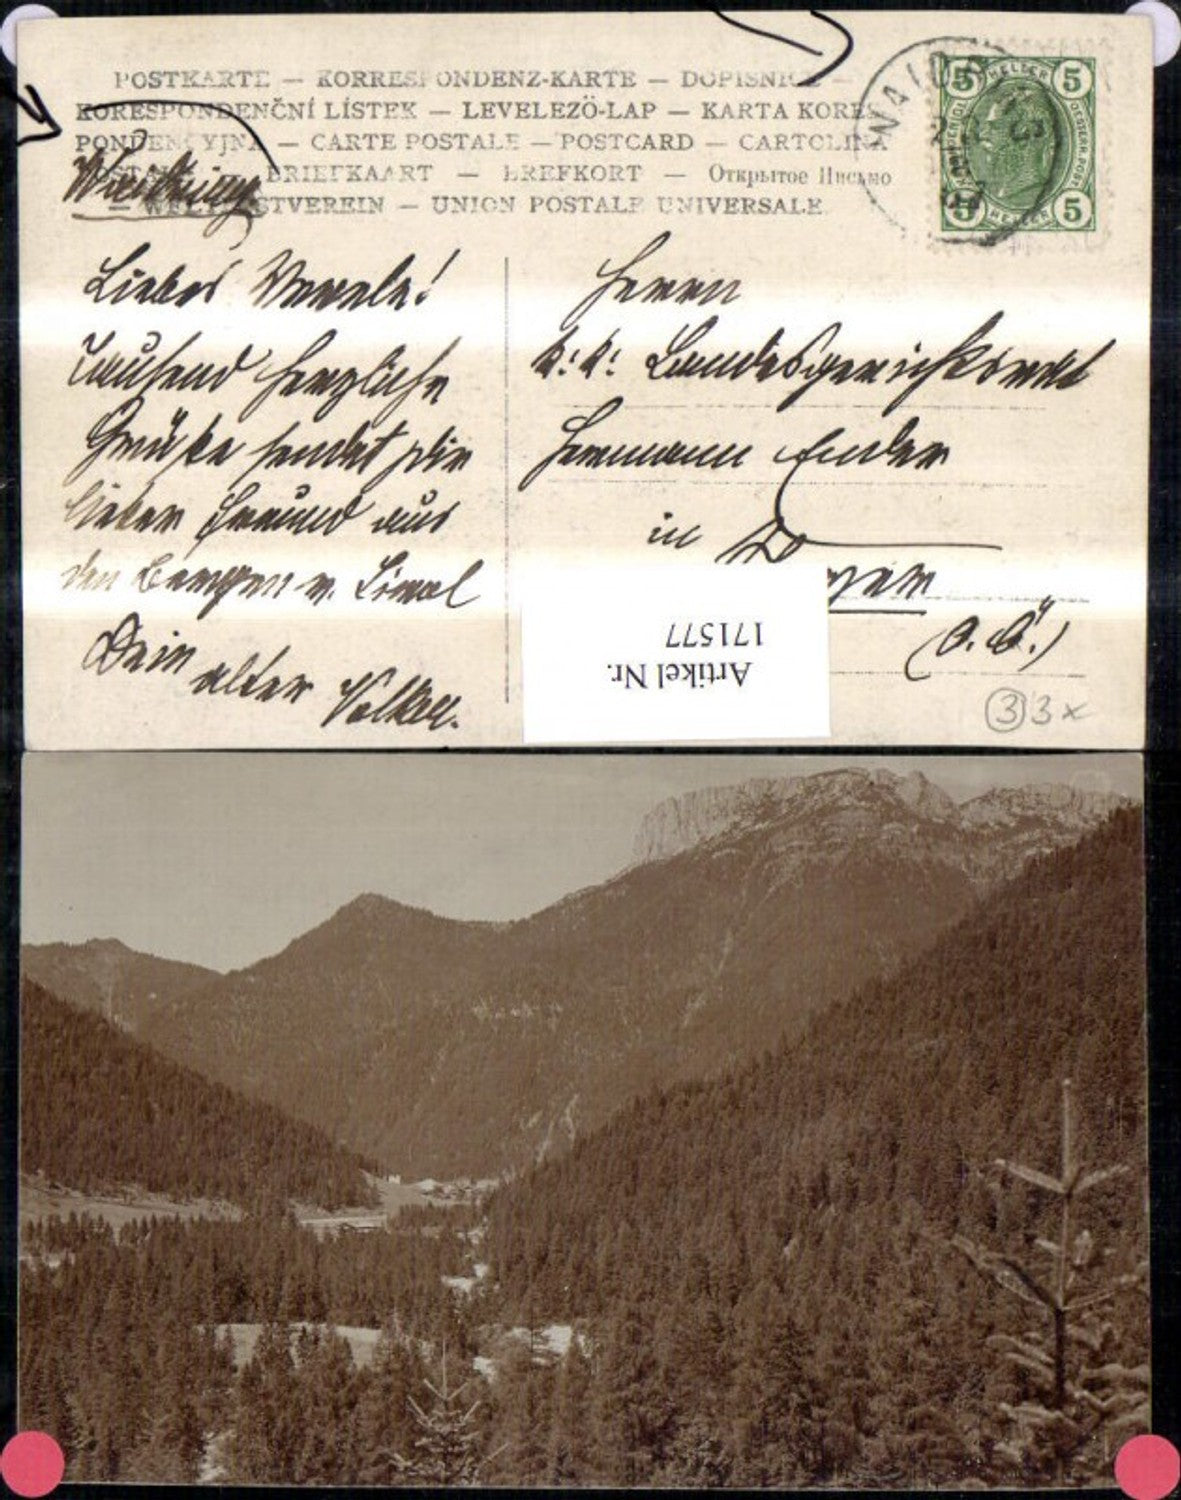 POSTKARTE — KORRESPONDENZ-KARTE — DOPISNICE —
KORESPONDENČNÍ LÍSTEK — LEVELEZŐ-LAP — KARTA KORES-
PONDENCYJNA — CARTE POSTALE — POSTCARD — CARTOLINA
BRIEFKAART — BREFKORT — Открытое Письмо
— WELTPOSTVEREIN — UNION POSTALE UNIVERSALE
WAID
5 HELLER 5
5 HELLER 5
Waidring
Liebes
Tausend herzliche
Grüße sendet Dir
lieber Freund aus
den Bergen v. Tirol
Dein
alter
Herrn
k. k. Landesgerichtsrat
Hermann Ender
in
(O. Ö.)
Artikel Nr.
171577
3 3 x